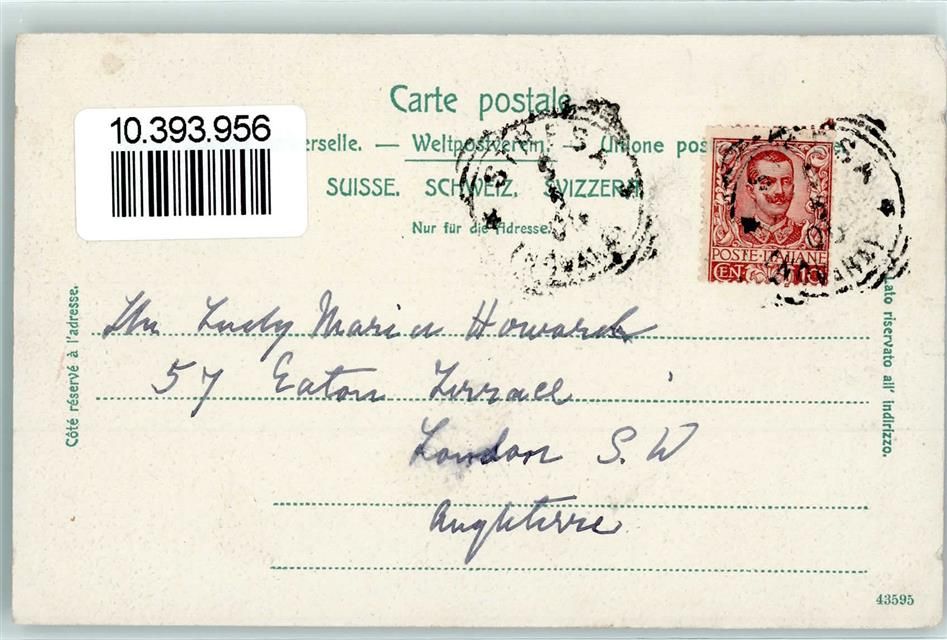 Carte postale
10.393.956
erselle. — Weltpostverein. — Unione pos
SUISSE. SCHWEIZ. SVIZZERA.
Nur für die Adresse.
STRESA
POSTE ITALIANE
CEN
Côté réservé à l'adresse.
Lato riservato all' indirizzo.
The Lady Maria Howard
57 Eaton Terrace
London S. W
Angleterre
43595